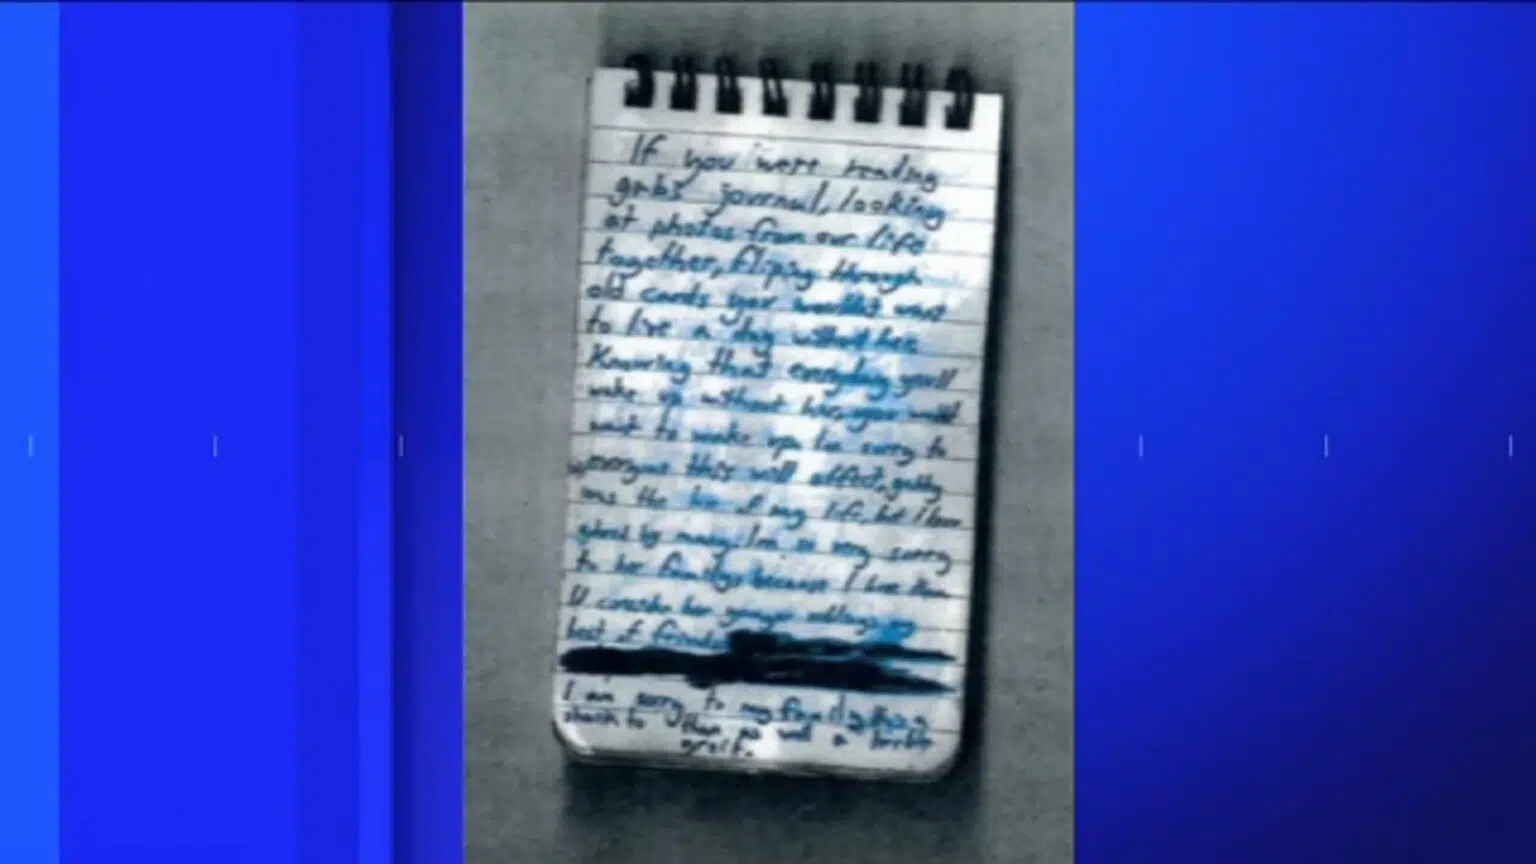 If you were reading
gabs journal, looking
at photos from our life
together, fliping through
old cards you wouldn't want
to live a day without her.
Knowing that everyday you'll
wake up without her, you wouldn't
want to wake up. I'm sorry to
everyone this will affect, gabby
was the love of my life, but I know
adored by many. I'm so very sorry
to her family, because I love them
I'd consider her younger siblings my
best of friends
I am sorry to my family, this is
shock to them as well a terrible
greif.